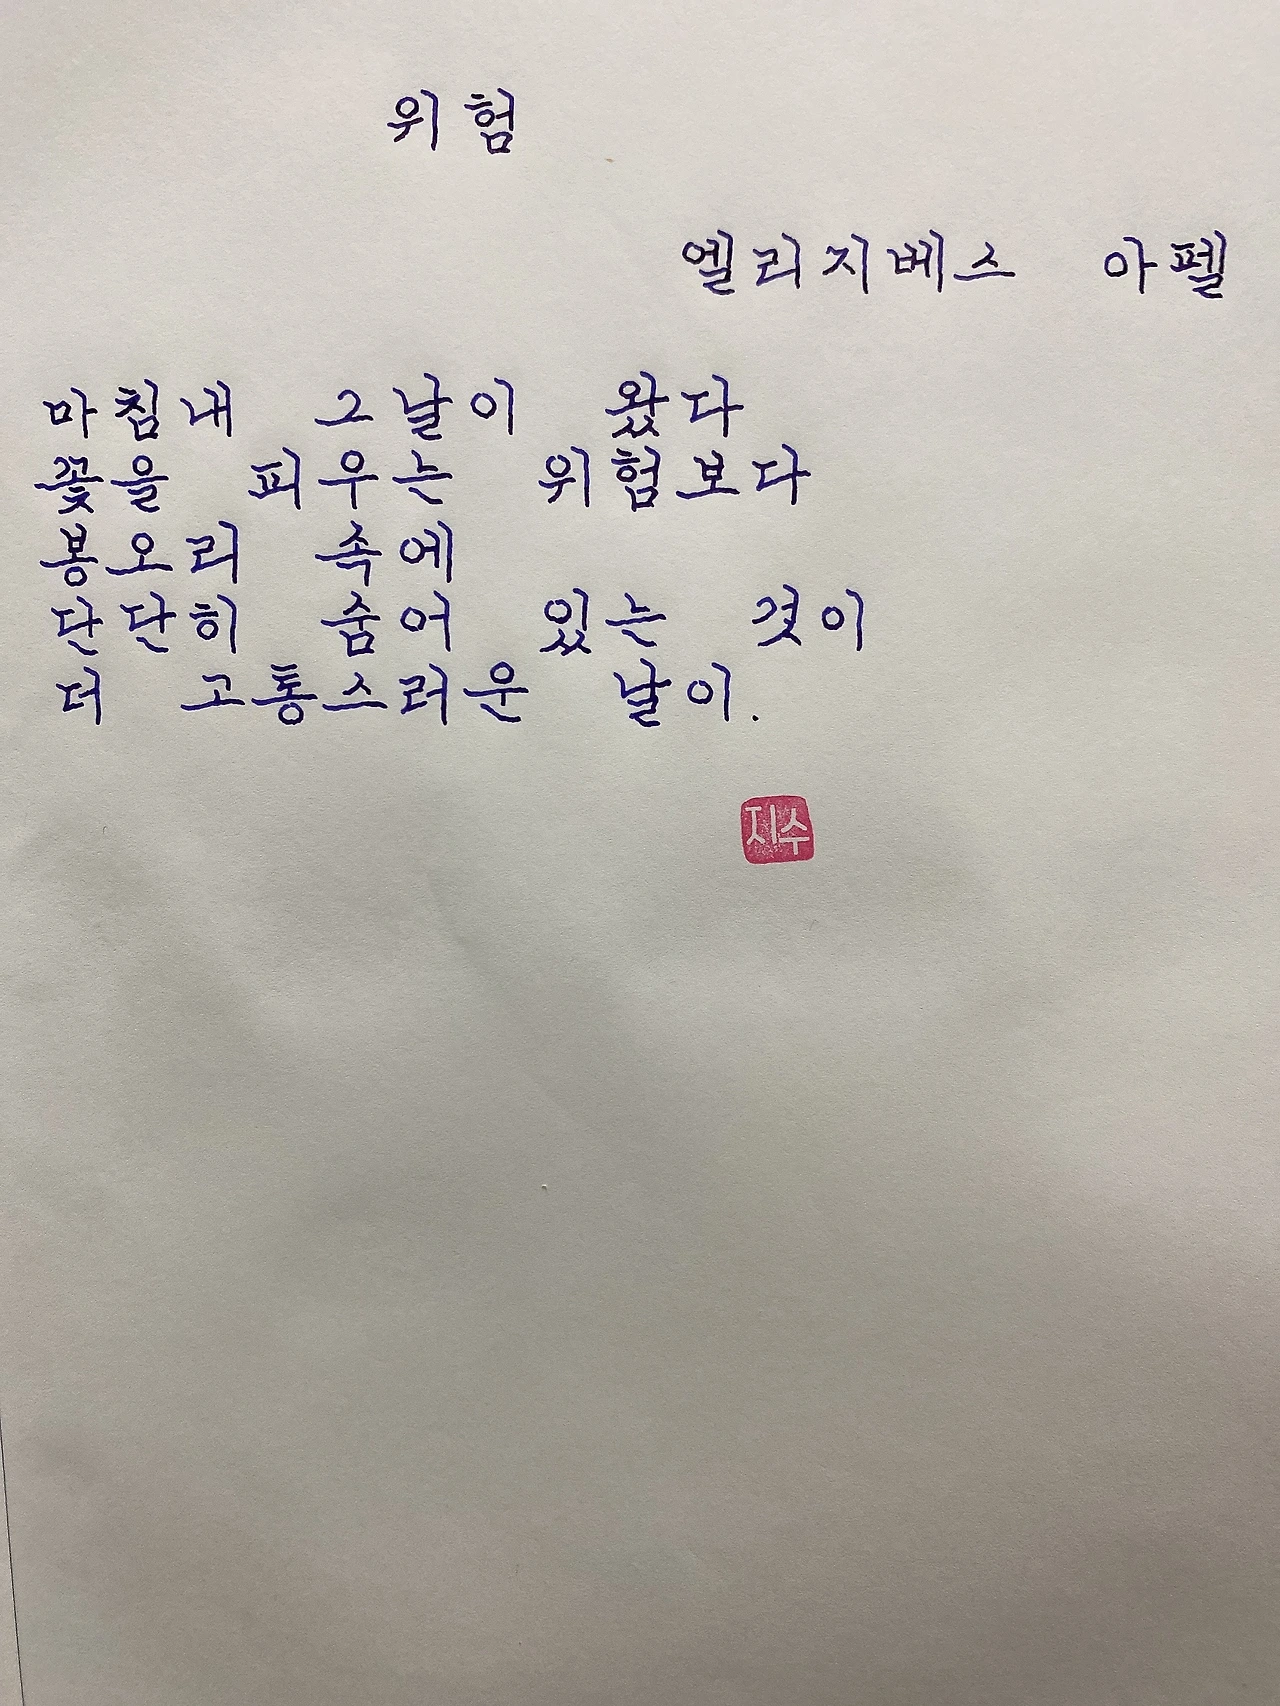 위험
엘리지베스 아펠
마침내 그날이 왔다
꽃을 피우는 위험보다
봉오리 속에
단단히 숨어 있는 것이
더 고통스러운 날이.
지수